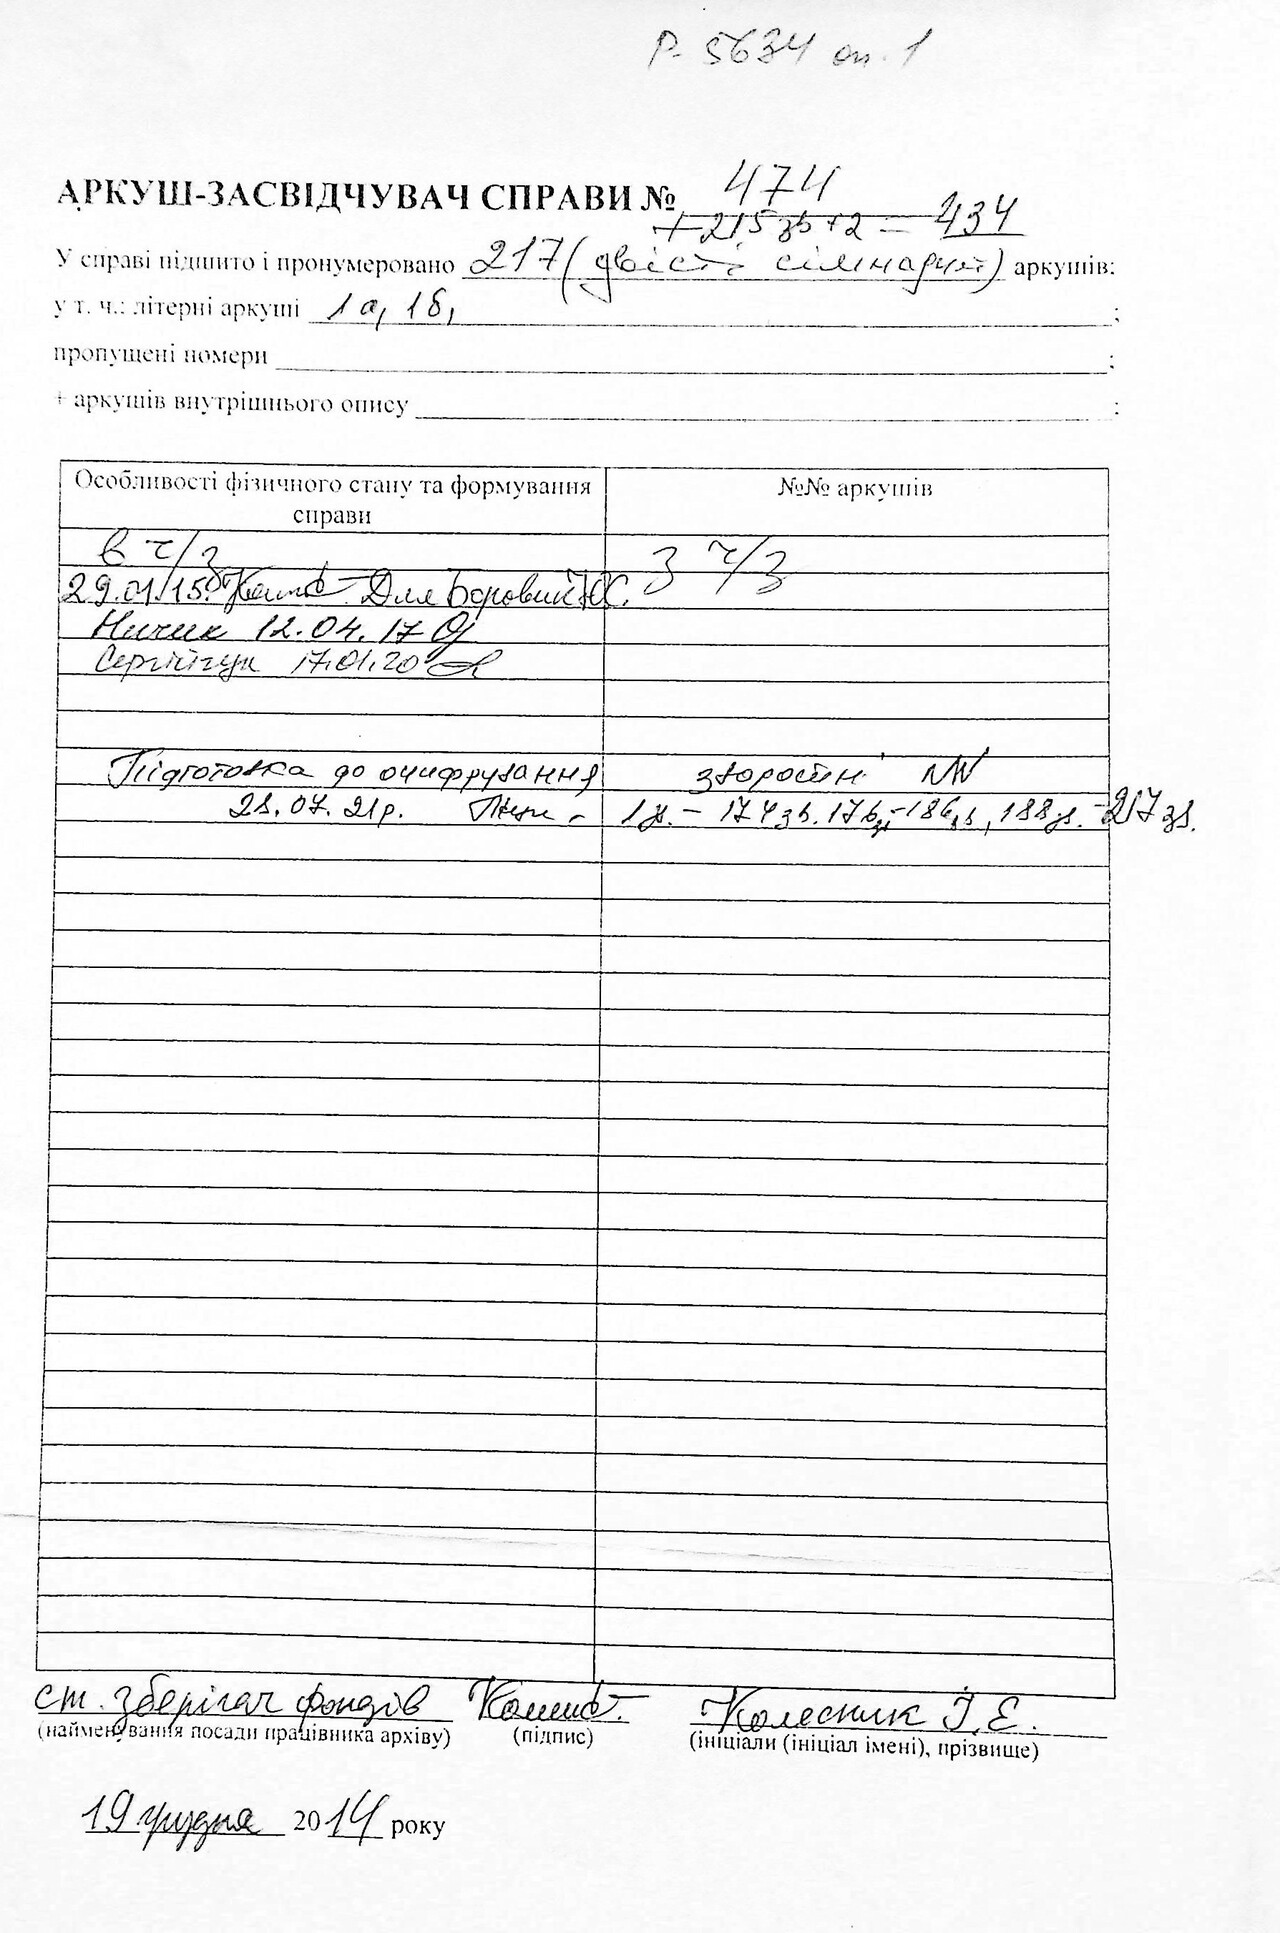 Р-5634 оп. 1
АРКУШ-ЗАСВІДЧУВАЧ СПРАВИ № 474
+ 215 зв + 2 = 434
У справі підшито і пронумеровано 217 (двісті сімнадцят) аркушів:
у т. ч.: літерні аркуші 1а, 1б, ;
пропущені номери ;
+ аркушів внутрішнього опису :
Особливості фізичного стану та формування справи
№№ аркушів
в ч/з
з ч/з
29.01.15. Для Боровик Ю.С.
Ничик 12.04.17
Сергійчук 17.01.20
Підготовка до оцифрування
звороти
28.07.21р.
1зв. - 174 зв. 176зв - 186зв, 188зв. - 217 зв.
ст. зберігач фондів Колесник І.Е.
(найменування посади працівника архіву) (підпис) (ініціали (ініціал імені), прізвище)
19 грудня 2014 року